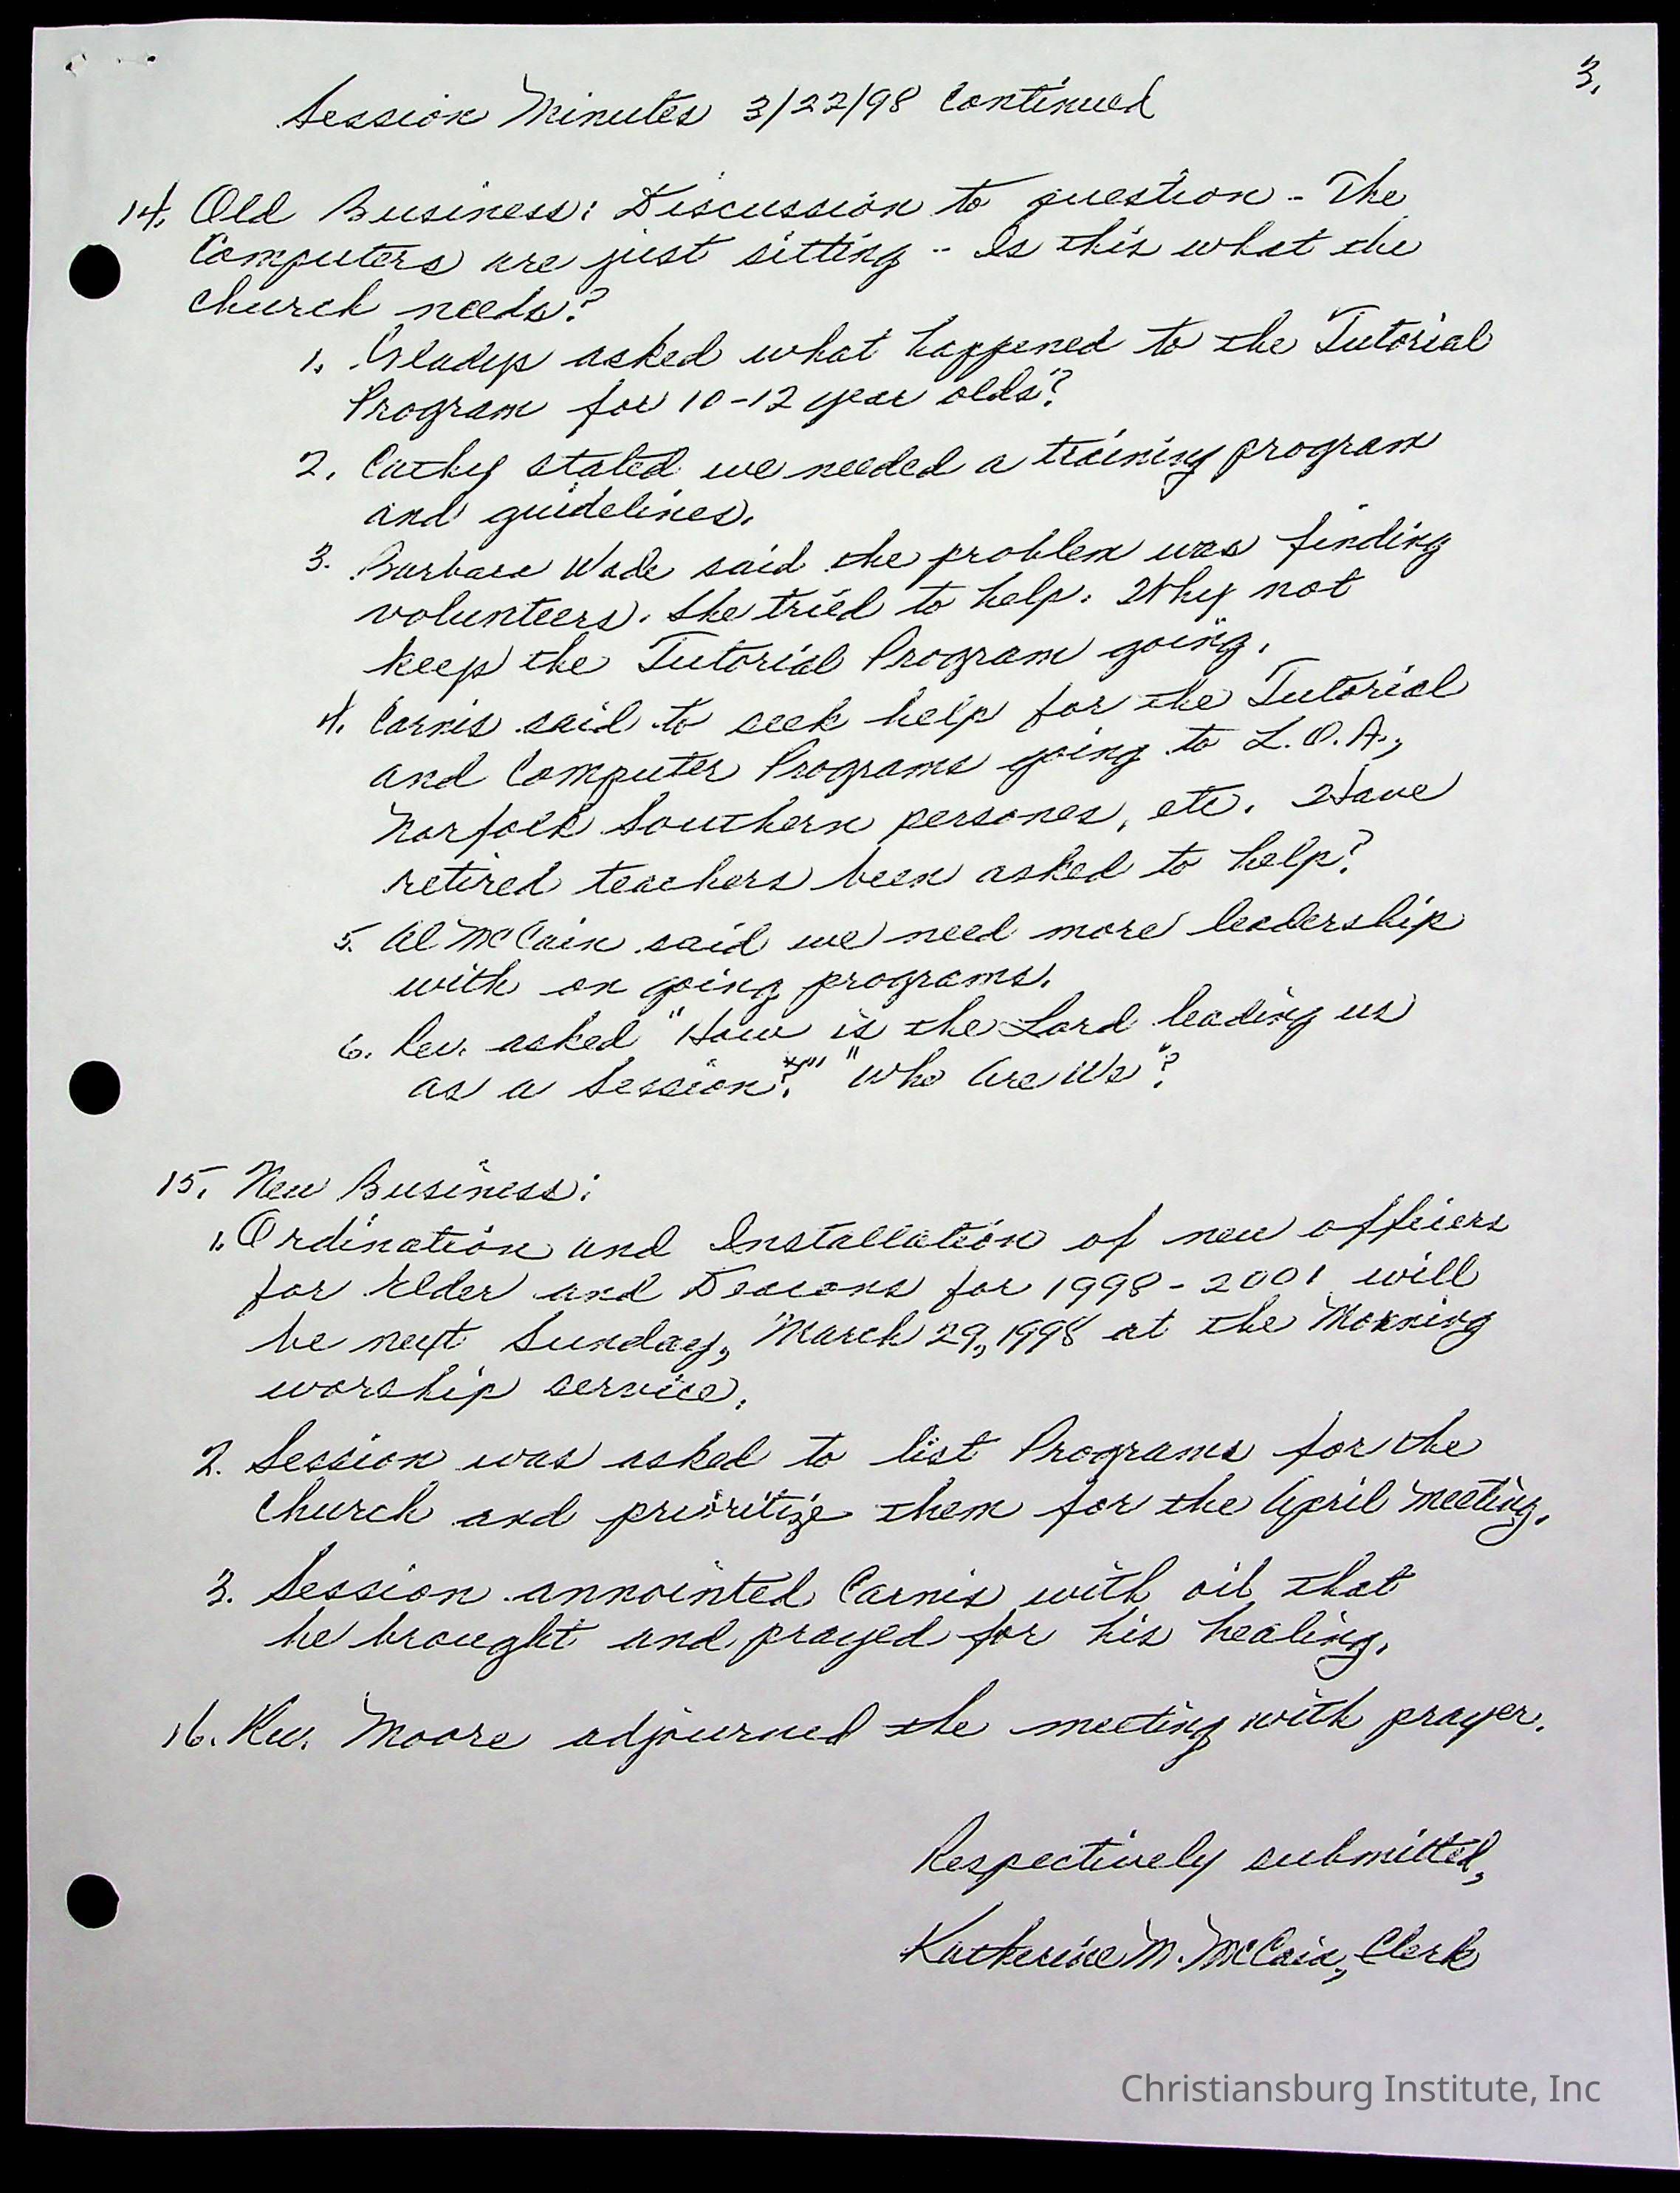 3.
Session Minutes 3/22/98 Continued
14. Old Business: Discussion to question - The
Computers are just sitting -- Is this what the
Church needs?
1. Gladys asked what happened to the Tutorial
Program for 10-12 year olds?
2. Cathy stated we needed a training program
and guidelines.
3. Barbara Wade said the problem was finding
volunteers. She tried to help. Why not
keep the Tutorial Program going.
4. Carnis said to seek help for the Tutorial
and Computer Programs going to L.O.A.,
Norfolk Southern persones, etc. Have
retired teachers been asked to help?
5. Al McCain said we need more leadership
with on going programs.
6. Rev. asked "How is the Lord leading us
as a Session?" "Who Are We"?
15. New Business:
1. Ordination and Installation of new officers
for Elder and Deacons for 1998-2001 will
be next Sunday, March 29, 1998 at the Morning
worship service.
2. Session was asked to list Programs for the
Church and prioritize them for the April meeting.
3. Session annointed Carnis with oil that
he brought and prayed for his healing.
16. Rev. Moore adjourned the meeting with prayer.
Respectively submitted,
Katherine M. McCain, Clerk
Christiansburg Institute, Inc